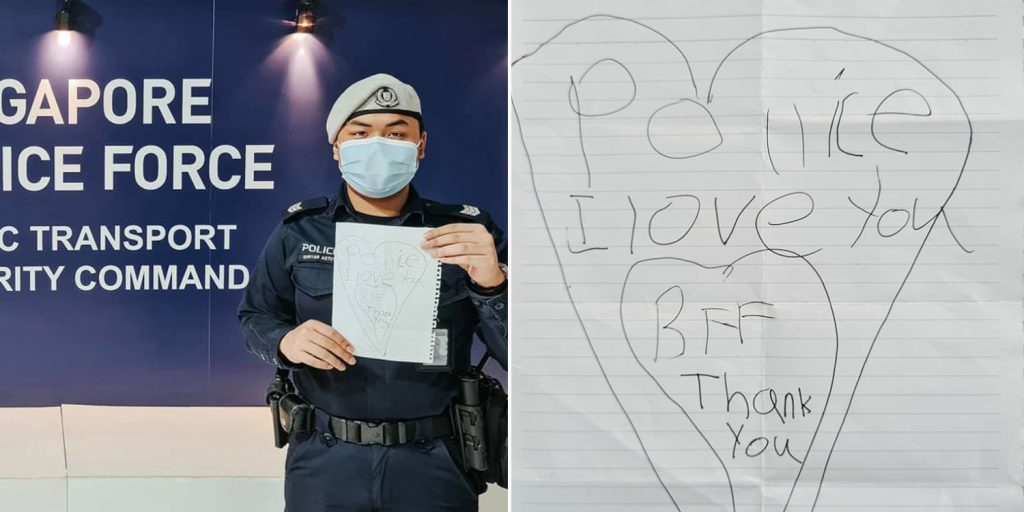 GAPORE
ICE FORCE
C TRANSPORT
RITY COMMAND
POLICE
Police
I love You
BFF
Thank
You
Police
I love You
BFF
Thank
You